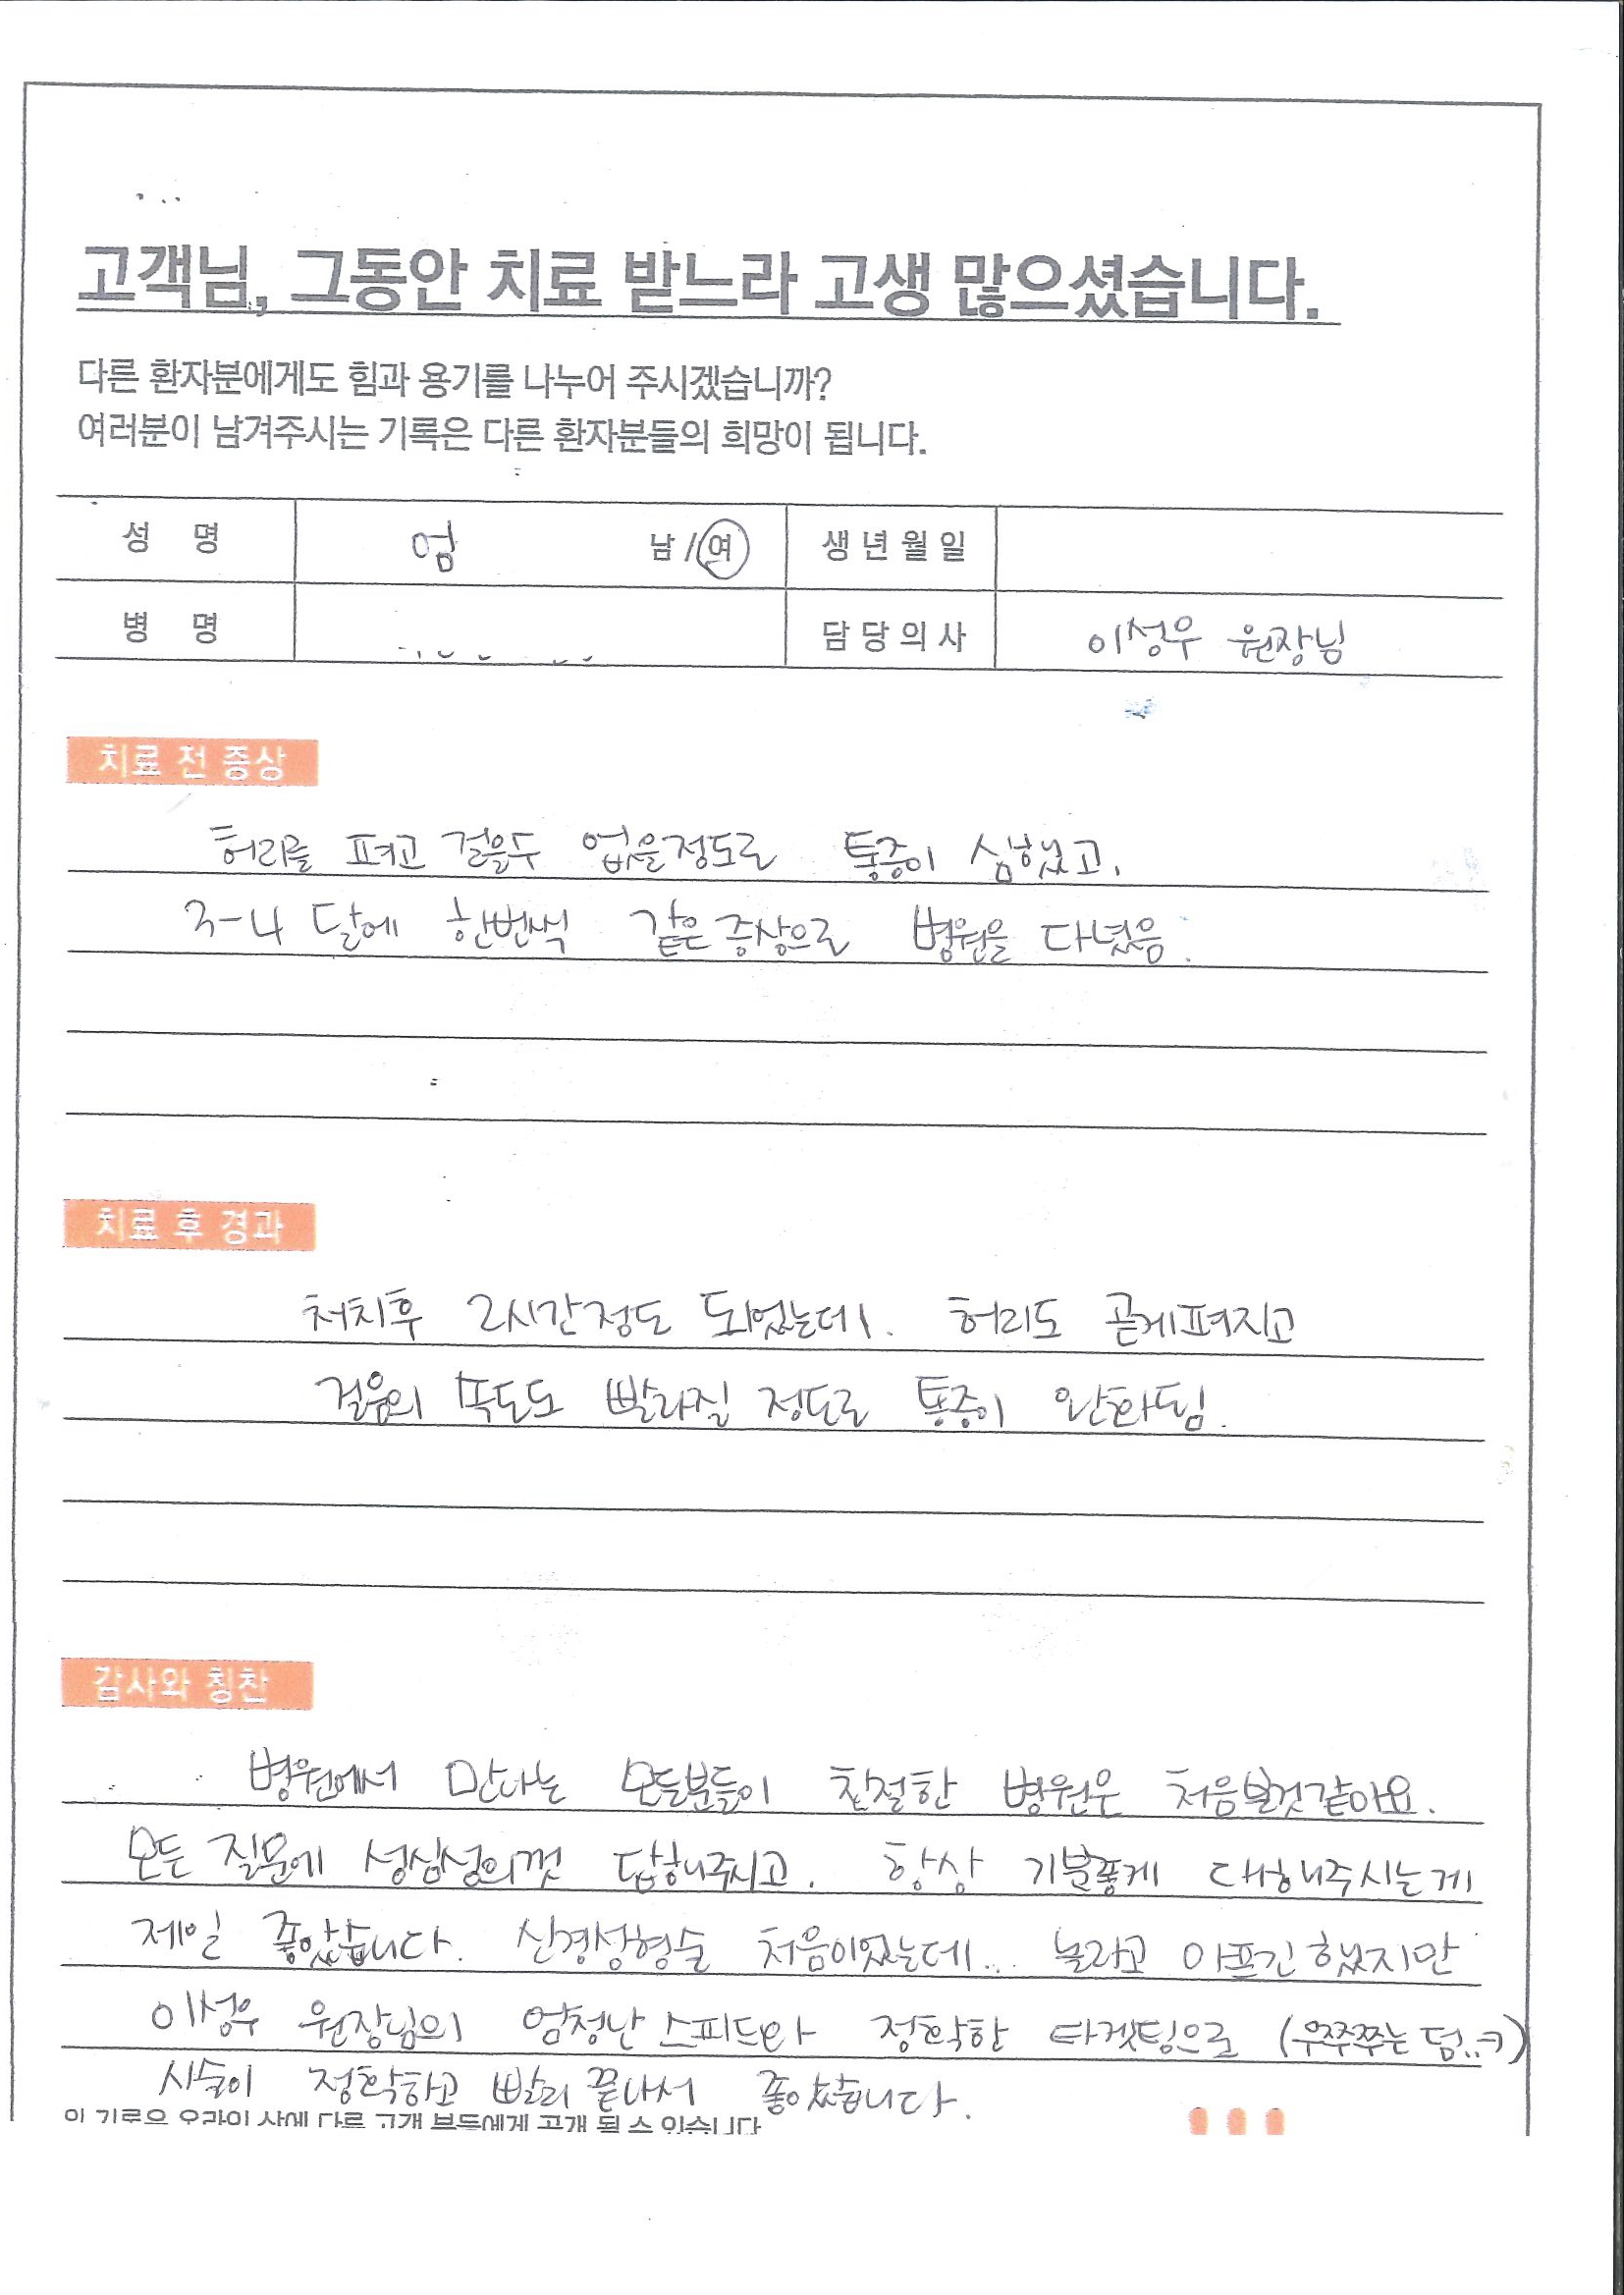 고객님, 그동안 치료 받느라 고생 많으셨습니다.
다른 환자분에게도 힘과 용기를 나누어 주시겠습니까?
여러분이 남겨주시는 기록은 다른 환자분들의 희망이 됩니다.
성 명 엄 남/여 생년월일
병 명 담당의사 이성우 원장님
치료 전 증상
허리를 펴고 걸을수 없을정도로 통증이 심했고,
3-4 달에 한번씩 같은 증상으로 병원을 다녔음.
치료 후 경과
처치후 2시간정도 되었는데, 허리도 곧게펴지고
걸음의 폭도도 빨라질 정도로 통증이 완화됨.
감사와 칭찬
병원에서 만나는 모든분들이 친절한 병원은 처음볼것같아요.
모든 질문에 성심성의껏 답해주시고, 항상 기분좋게 대해주시는게
제일 좋았습니다. 신경성형술 처음이었는데... 놀라고 아프긴했지만
이성우 원장님의 엄청난 스피드와 정확한 타겟팅으로 (우쭈쭈는 덤..ㅋ)
시술이 정확하고 빨리 끝나서 좋았습니다.
이 기록은 온라인 상에 다른 고객 분들에게 공개 될 수 있습니다